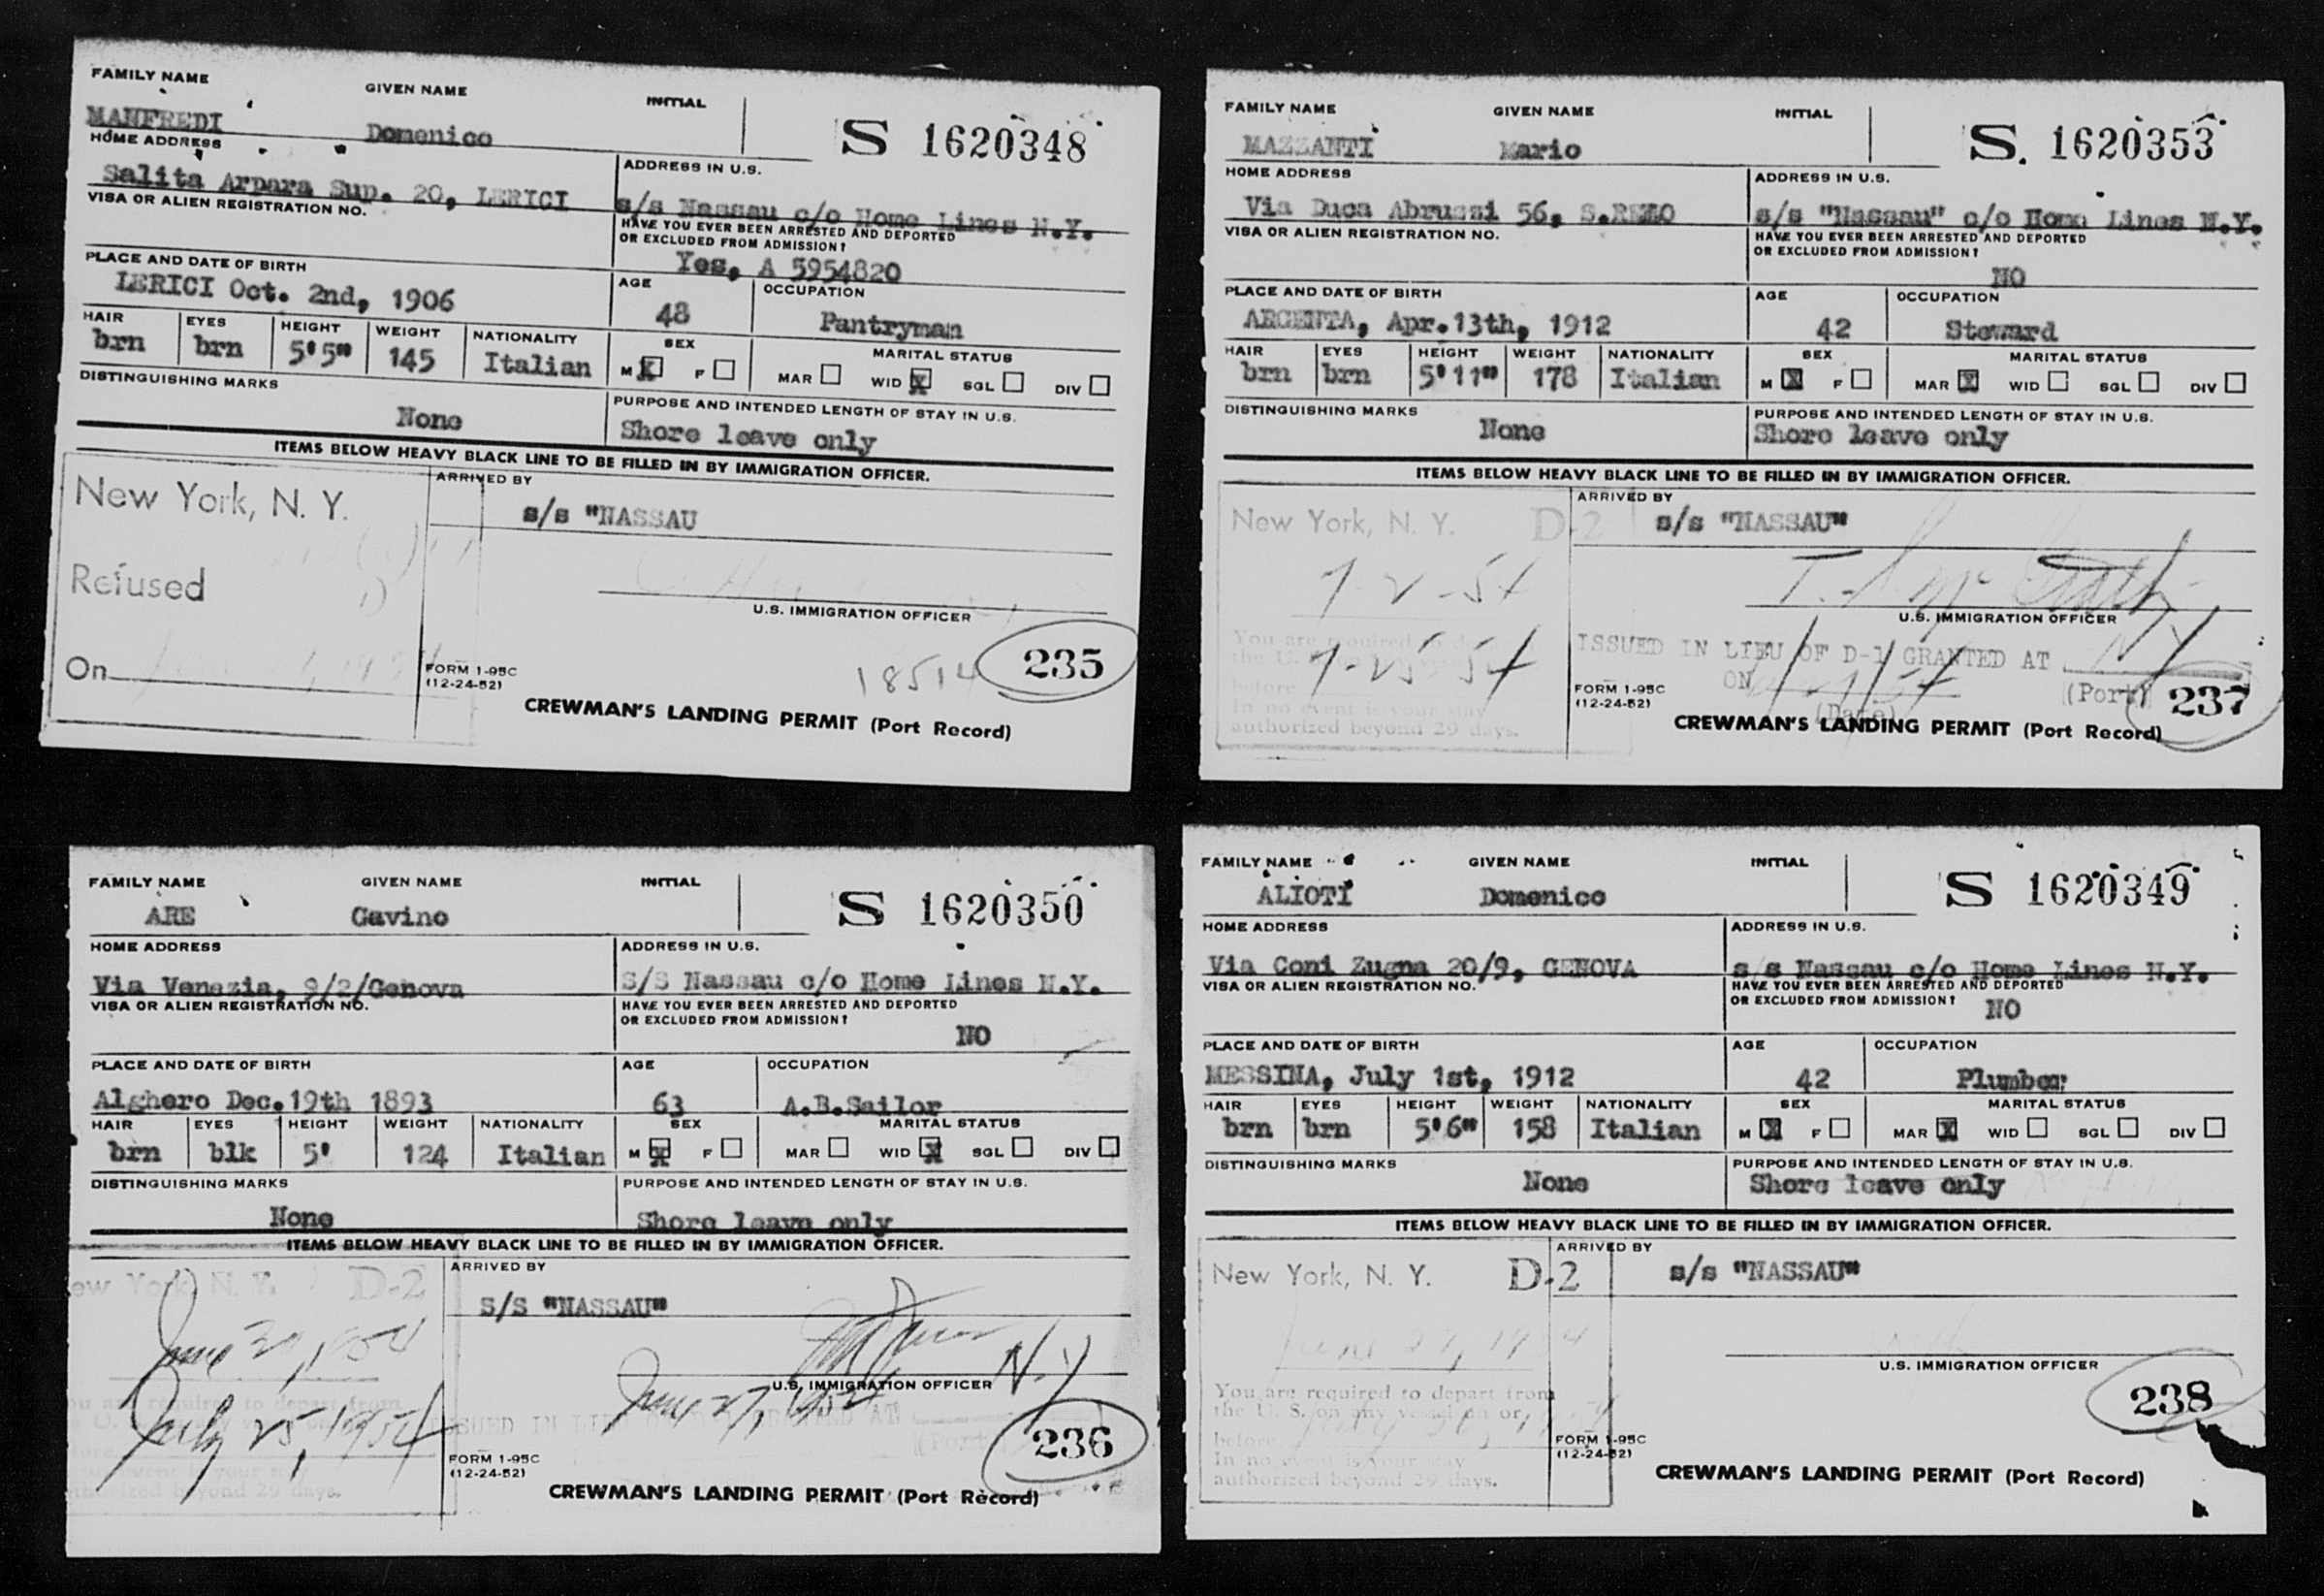 FAMILY NAME GIVEN NAME INITIAL
MANFREDI Domenico S 1620348
HOME ADDRESS ADDRESS IN U.S.
Salita Arpara Sup. 20, LERICI s/s Nassau c/o Home Lines N.Y.
VISA OR ALIEN REGISTRATION NO. HAVE YOU EVER BEEN ARRESTED AND DEPORTED
OR EXCLUDED FROM ADMISSION?
Yes, A 5954820
PLACE AND DATE OF BIRTH AGE OCCUPATION
LERICI Oct. 2nd, 1906 48 Pantryman
HAIR EYES HEIGHT WEIGHT NATIONALITY SEX MARITAL STATUS
brn brn 5'5" 145 Italian M X F MAR WID X SGL DIV
DISTINGUISHING MARKS PURPOSE AND INTENDED LENGTH OF STAY IN U.S.
None Shore leave only
ITEMS BELOW HEAVY BLACK LINE TO BE FILLED IN BY IMMIGRATION OFFICER.
New York, N. Y. ARRIVED BY
s/s "NASSAU
Refused
U.S. IMMIGRATION OFFICER
On
FORM 1-95C
(12-24-52)
18514 235
CREWMAN'S LANDING PERMIT (Port Record)
FAMILY NAME GIVEN NAME INITIAL
MAZZANTI Mario S. 1620353
HOME ADDRESS ADDRESS IN U.S.
Via Duca Abruzzi 56, S.REMO s/s "Nassau" c/o Home Lines N.Y.
VISA OR ALIEN REGISTRATION NO. HAVE YOU EVER BEEN ARRESTED AND DEPORTED
OR EXCLUDED FROM ADMISSION?
NO
PLACE AND DATE OF BIRTH AGE OCCUPATION
ARGENTA, Apr.13th, 1912 42 Steward
HAIR EYES HEIGHT WEIGHT NATIONALITY SEX MARITAL STATUS
brn brn 5'11" 178 Italian M X F MAR X WID SGL DIV
DISTINGUISHING MARKS PURPOSE AND INTENDED LENGTH OF STAY IN U.S.
None Shore leave only
ITEMS BELOW HEAVY BLACK LINE TO BE FILLED IN BY IMMIGRATION OFFICER.
New York, N. Y. D-2 ARRIVED BY
s/s "NASSAU"
7-2-54
U.S. IMMIGRATION OFFICER
You are required to depart
the U.
before 7-25-54
In no event is your stay
authorized beyond 29 days.
ISSUED IN LIEU OF D-1 GRANTED AT N.Y
ON (Date) (Port)
FORM 1-95C
(12-24-52)
237
CREWMAN'S LANDING PERMIT (Port Record)
FAMILY NAME GIVEN NAME INITIAL
ARE Gavino S 1620350
HOME ADDRESS ADDRESS IN U.S.
Via Venezia, 9/2/Genova S/S Nassau c/o Home Lines N.Y.
VISA OR ALIEN REGISTRATION NO. HAVE YOU EVER BEEN ARRESTED AND DEPORTED
OR EXCLUDED FROM ADMISSION?
NO
PLACE AND DATE OF BIRTH AGE OCCUPATION
Alghero Dec.19th 1893 63 A.B.Sailor
HAIR EYES HEIGHT WEIGHT NATIONALITY SEX MARITAL STATUS
brn blk 5' 124 Italian M X F MAR WID X SGL DIV
DISTINGUISHING MARKS PURPOSE AND INTENDED LENGTH OF STAY IN U.S.
None Shore leave only
ITEMS BELOW HEAVY BLACK LINE TO BE FILLED IN BY IMMIGRATION OFFICER.
ew York, N. Y. D-2 ARRIVED BY
S/S "NASSAU"
U.S. IMMIGRATION OFFICER N.Y
July 25, 1954 June 27, 1954
FORM 1-95C
(12-24-52)
236
CREWMAN'S LANDING PERMIT (Port Record)
FAMILY NAME GIVEN NAME INITIAL
ALIOTI Domenico S 1620349
HOME ADDRESS ADDRESS IN U.S.
Via Coni Zugna 20/9, GENOVA s s Nassau c/o Home Lines N.Y.
VISA OR ALIEN REGISTRATION NO. HAVE YOU EVER BEEN ARRESTED AND DEPORTED
OR EXCLUDED FROM ADMISSION?
NO
PLACE AND DATE OF BIRTH AGE OCCUPATION
MESSINA, July 1st, 1912 42 Plumber
HAIR EYES HEIGHT WEIGHT NATIONALITY SEX MARITAL STATUS
brn brn 5'6" 158 Italian M X F MAR X WID SGL DIV
DISTINGUISHING MARKS PURPOSE AND INTENDED LENGTH OF STAY IN U.S.
None Shore leave only
ITEMS BELOW HEAVY BLACK LINE TO BE FILLED IN BY IMMIGRATION OFFICER.
New York, N. Y. D-2 ARRIVED BY
s/s "NASSAU"
U.S. IMMIGRATION OFFICER
You are required to depart from
the U. S. on any vessel on or
before
In no event is your stay
authorized beyond 29 days.
FORM 1-95C
(12-24-52)
238
CREWMAN'S LANDING PERMIT (Port Record)